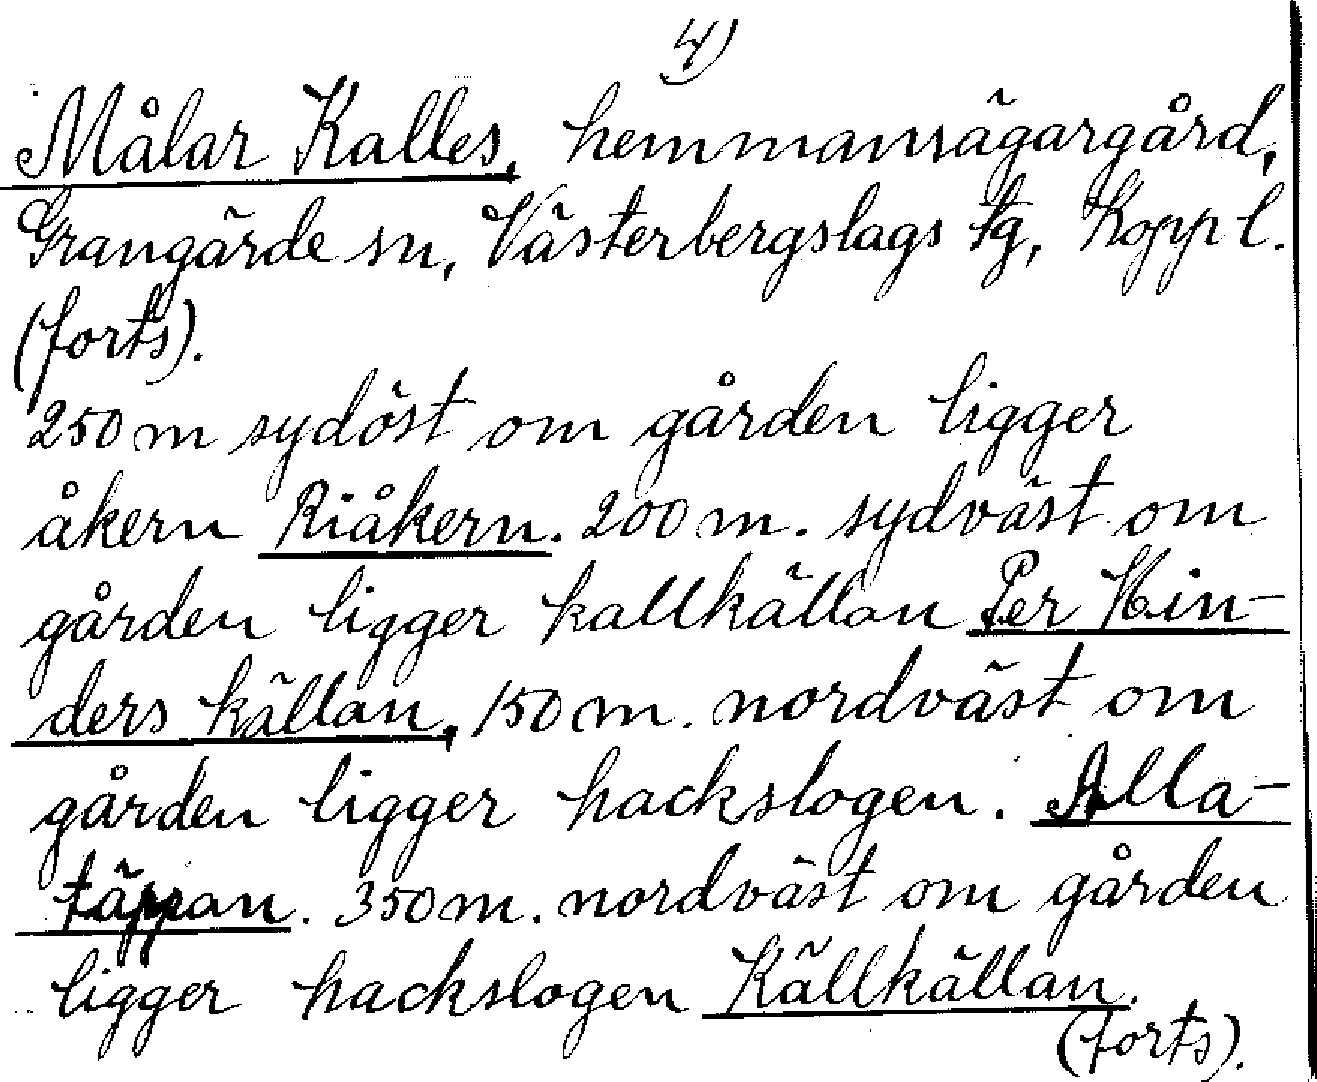 4)
Målar Kalles, hemmansägargård,
Grangärde sn, Västerbergslags tg, Kopp l.
(forts).
250 m sydöst om gården ligger
åkern Riåkern. 200 m. sydväst om
gården ligger kallkällan Per Hin-
ders källan, 150 m. nordväst om
gården ligger hackslogen. Alla-
täppan. 350 m. nordväst om gården
ligger hackslogen Källkällan.
(forts).